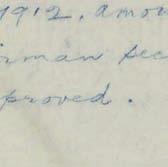 1912, amou
irman sec
proved.